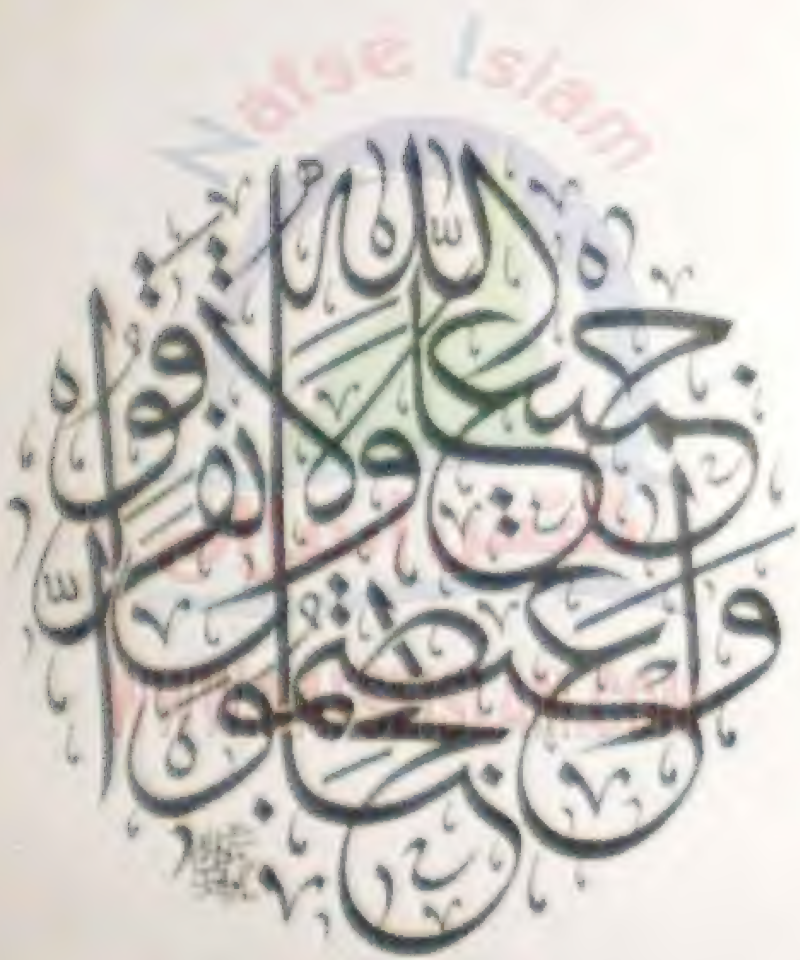 Nafse Islam
واعتصموا بحبل الله جميعا ولا تفرقوا